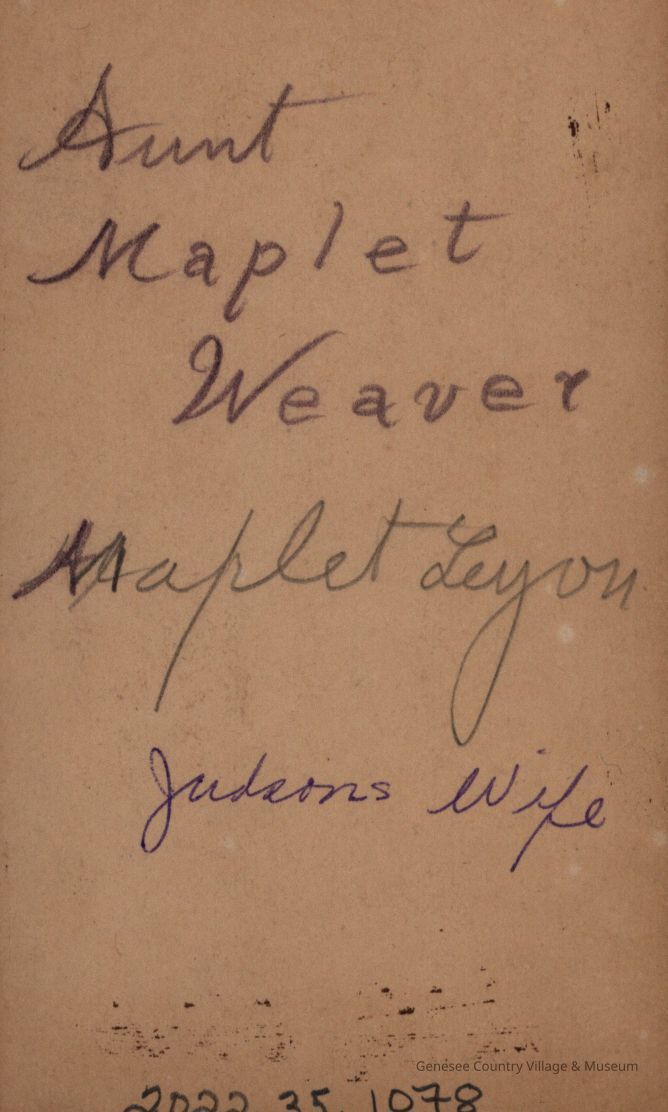 Aunt
Maplet
Weaver
Maplet Lyon
Judsons Wife
Genesee Country Village & Museum
2022.35.1078